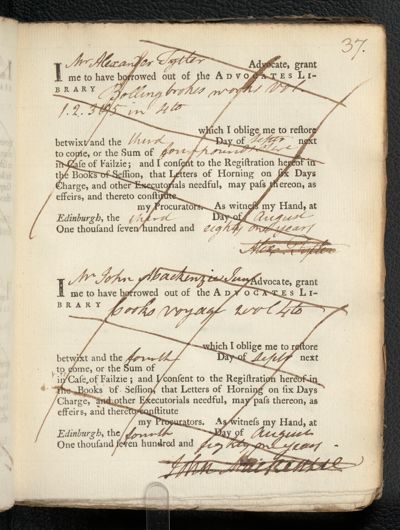 37.
I Mr Alexander Tytler Advocate, grant
me to have borrowed out of the ADVOCATES LI-
BRARY Bollingbrokes works vol.
1. 2. 3 & 5 in 4to
which I oblige me to reſtore
betwixt and the third Day of Septr next
to come, or the Sum of four pounds
in Caſe of Failzie; and I conſent to the Regiſtration hereof in
the Books of Seſſion, that Letters of Horning on ſix Days
Charge, and other Executorials needful, may paſs thereon, as
effeirs, and thereto conſtitute
my Procurators. As witneſs my Hand, at
Edinburgh, the third Day of August
One thouſand ſeven hundred and eighty one years
Alex. Tytler
I Mr John Mackenzie Junr Advocate, grant
me to have borrowed out of the ADVOCATES LI-
BRARY Cooks voyage 2 vol 4to
which I oblige me to reſtore
betwixt and the fourth Day of Septr next
to come, or the Sum of
in Caſe of Failzie; and I conſent to the Regiſtration hereof in
the Books of Seſſion, that Letters of Horning on ſix Days
Charge, and other Executorials needful, may paſs thereon, as
effeirs, and thereto conſtitute
my Procurators. As witneſs my Hand, at
Edinburgh, the fourth Day of August
One thouſand ſeven hundred and eighty one years.
John Mackenzie